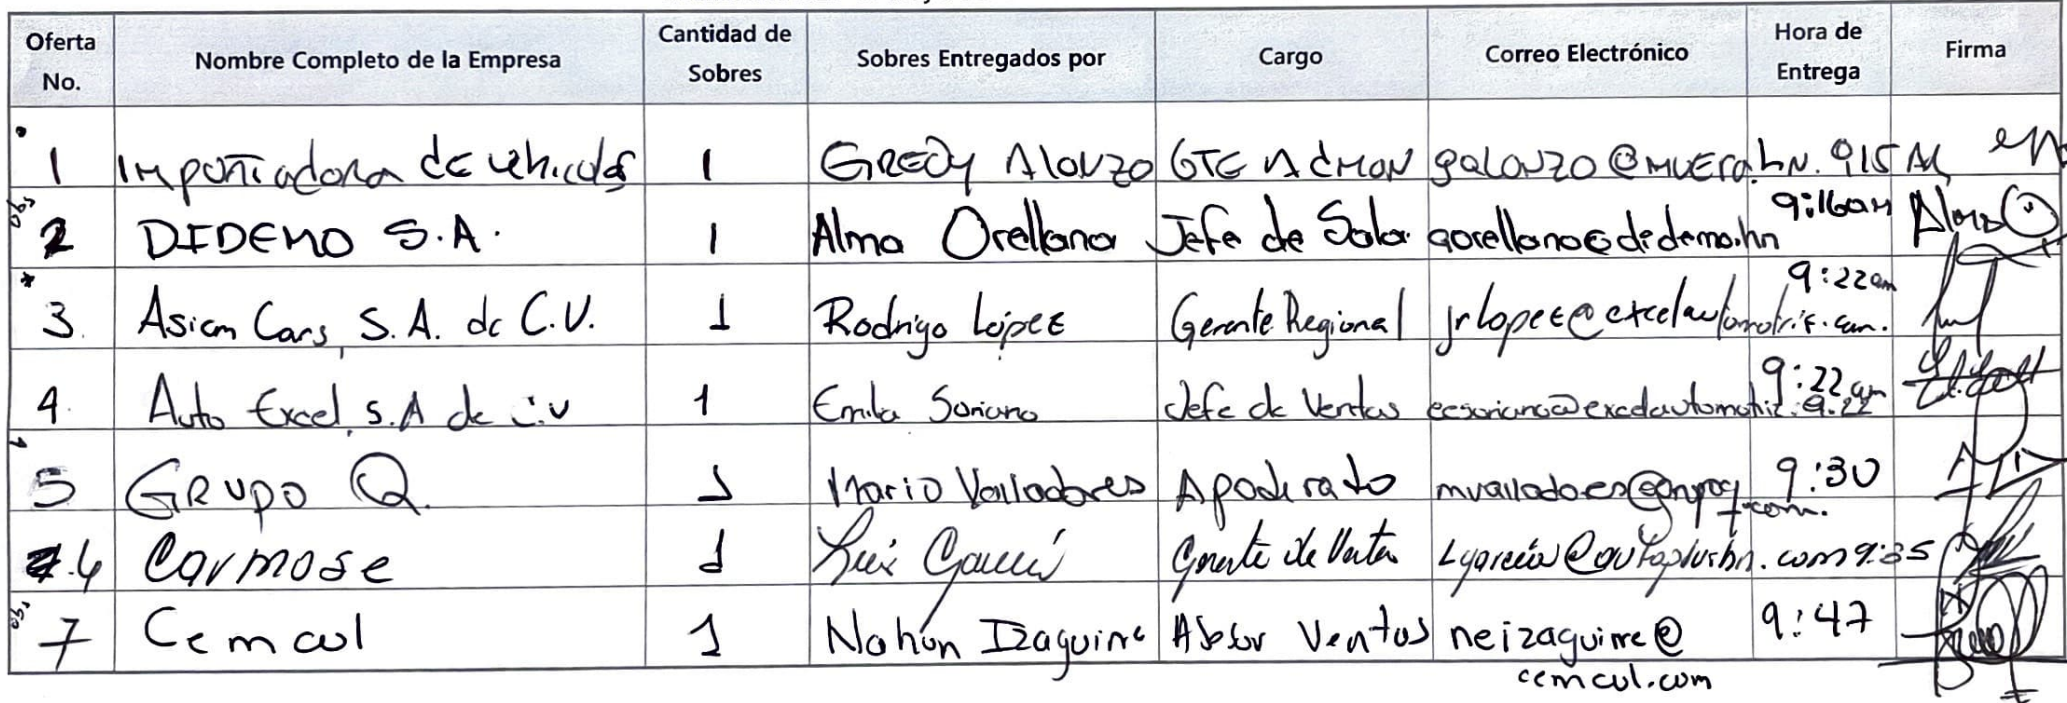 Oferta No. Nombre Completo de la Empresa Cantidad de Sobres Sobres Entregados por Cargo Correo Electrónico Hora de Entrega Firma
1 Importadora de vehiculos 1 GREDY ALONZO GTE ADMON galonzo@ .hn. 915 AM
obs 2 DIDEMO S.A. 1 Alma Orellana Jefe de Sala aorellano@didemo.hn 9:16am
3. Asian Cars, S.A. de C.V. 1 Rodrigo López Gerente Regional jrlopez@excelautomotriz.com. 9:22am
4. Auto Excel, S.A de C.V 1 Emilia Soriano Jefe de Ventas ecsoriano@excelautomotriz. 9:22am 9:22
5 GRUPO Q. 1 Mario Valladares Apoderado mvalladares@grupoq.com. 9:30
Carmose 1 Luis García Gerente de Ventas 9:35
obs 7 Cemcol 1 Nahún Izaguirre Asesor Ventas neizaguirre@ 9:47
cemcol.com